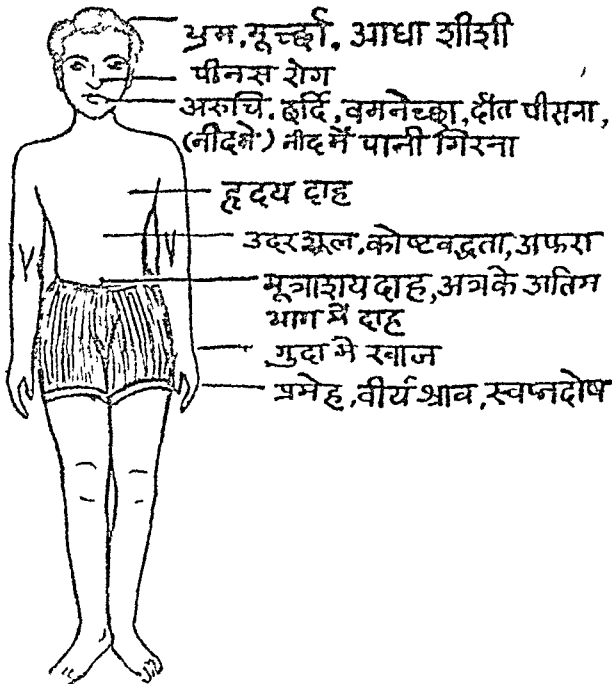 भ्रम, मूर्च्छा. आधा शीशी
पीनस रोग
अरुचि. छर्दि, वमनेच्छा, दाँत पीसना,
(नीदमे) नीद में पानी गिरना
हृदय दाह
उदर शूल, कोष्टवद्धता, अफरा
मूत्राशय दाह, अत्रके अतिम
भाग में दाह
गुदा मे खाज
प्रमेह, वीर्य श्राव, स्वप्नदोष